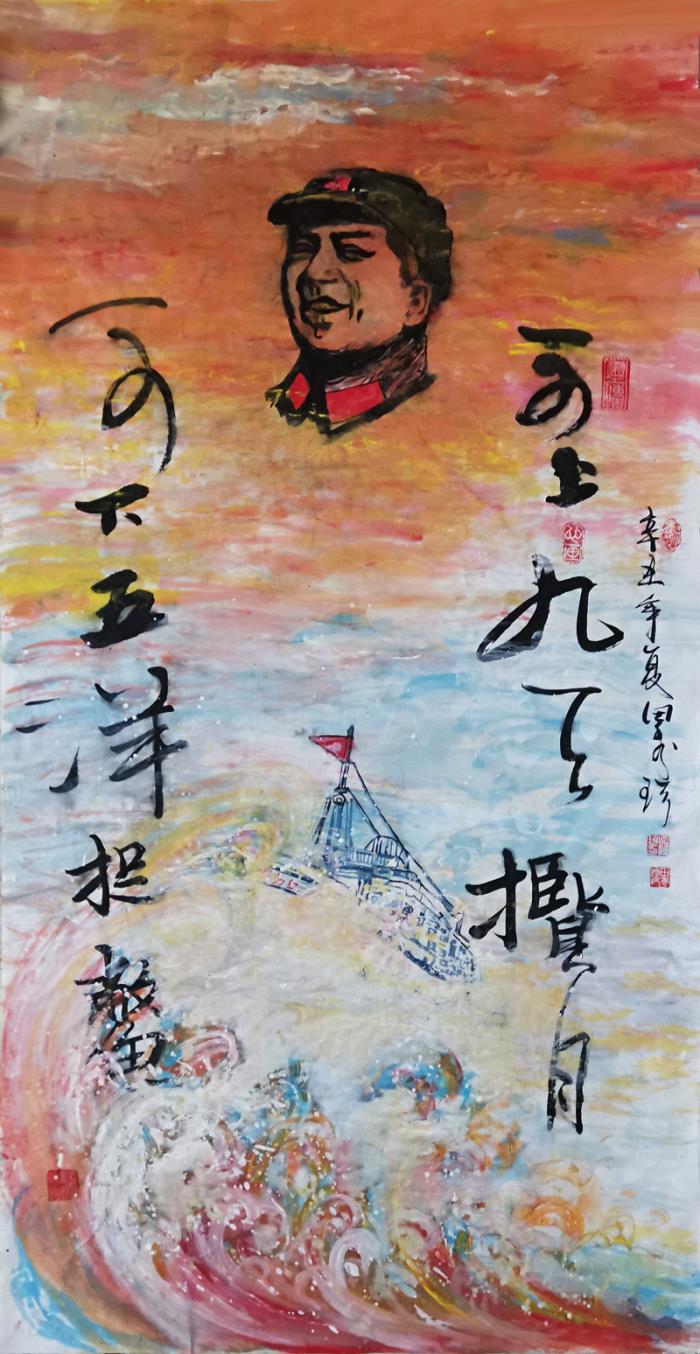 可上九天攬月
可下五洋捉鱉
辛丑年夏